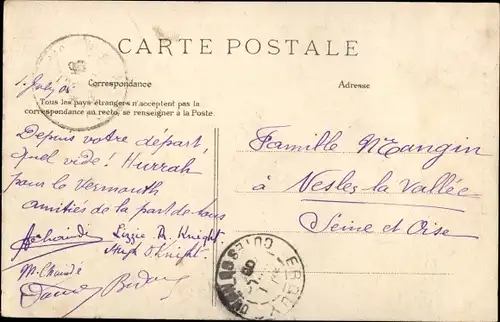 CARTE POSTALE
Correspondance
Adresse
Tous les pays étrangers n'acceptent pas la
correspondance au recto, se renseigner à la Poste.
1. July 05
Depuis votre départ,
quel vide! Hurrah
pour le Vermouth
amitiés de la part de tous
Lizzie A. Knight
Hugh O. Knight.
M. Claudé
Famille Mangin
à Nesles la Vallée
Seine et Oise
COTES DU NORD